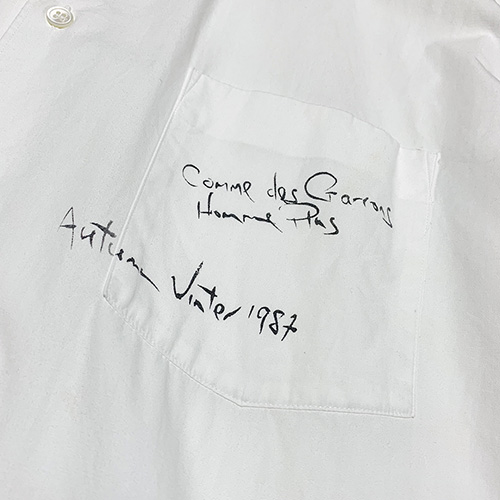 Comme des Garcons
Homme Plus
Autumn Winter 1987